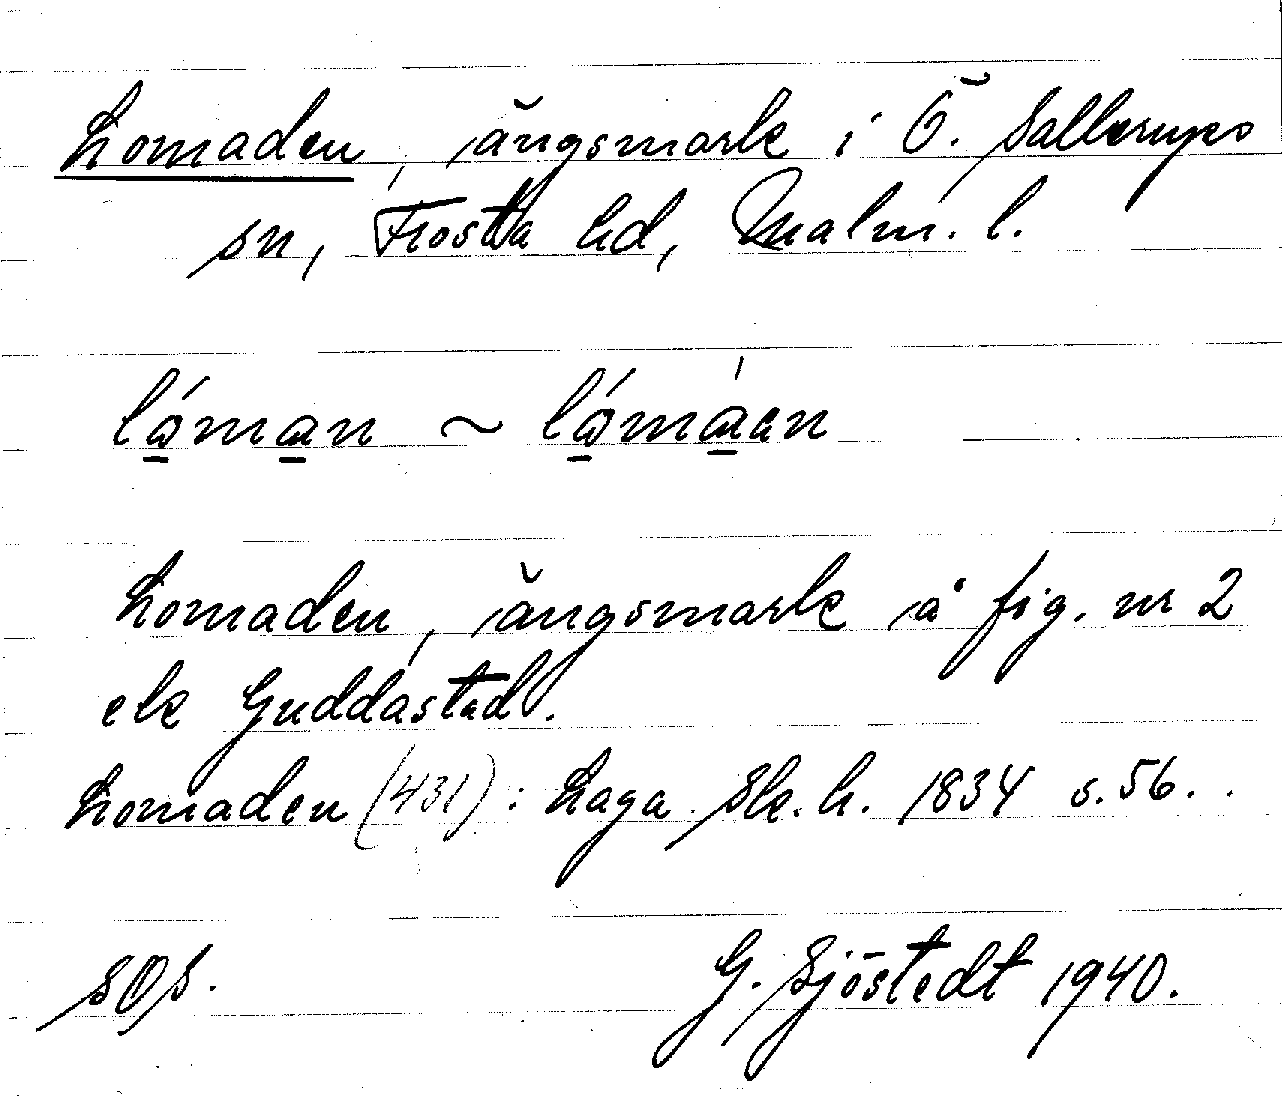 Lomaden, ängsmark i Ö. Sallerups
sn, Frosta hd, Malm. l.
ló̱ma̱n ~ ló̱má̱en
Lomaden, ängsmark å fig. nr 2
ek Guddastad.
Lomaden (431): Laga Sk. h. 1834 s. 56.
SOS. G. Sjöstedt 1940.